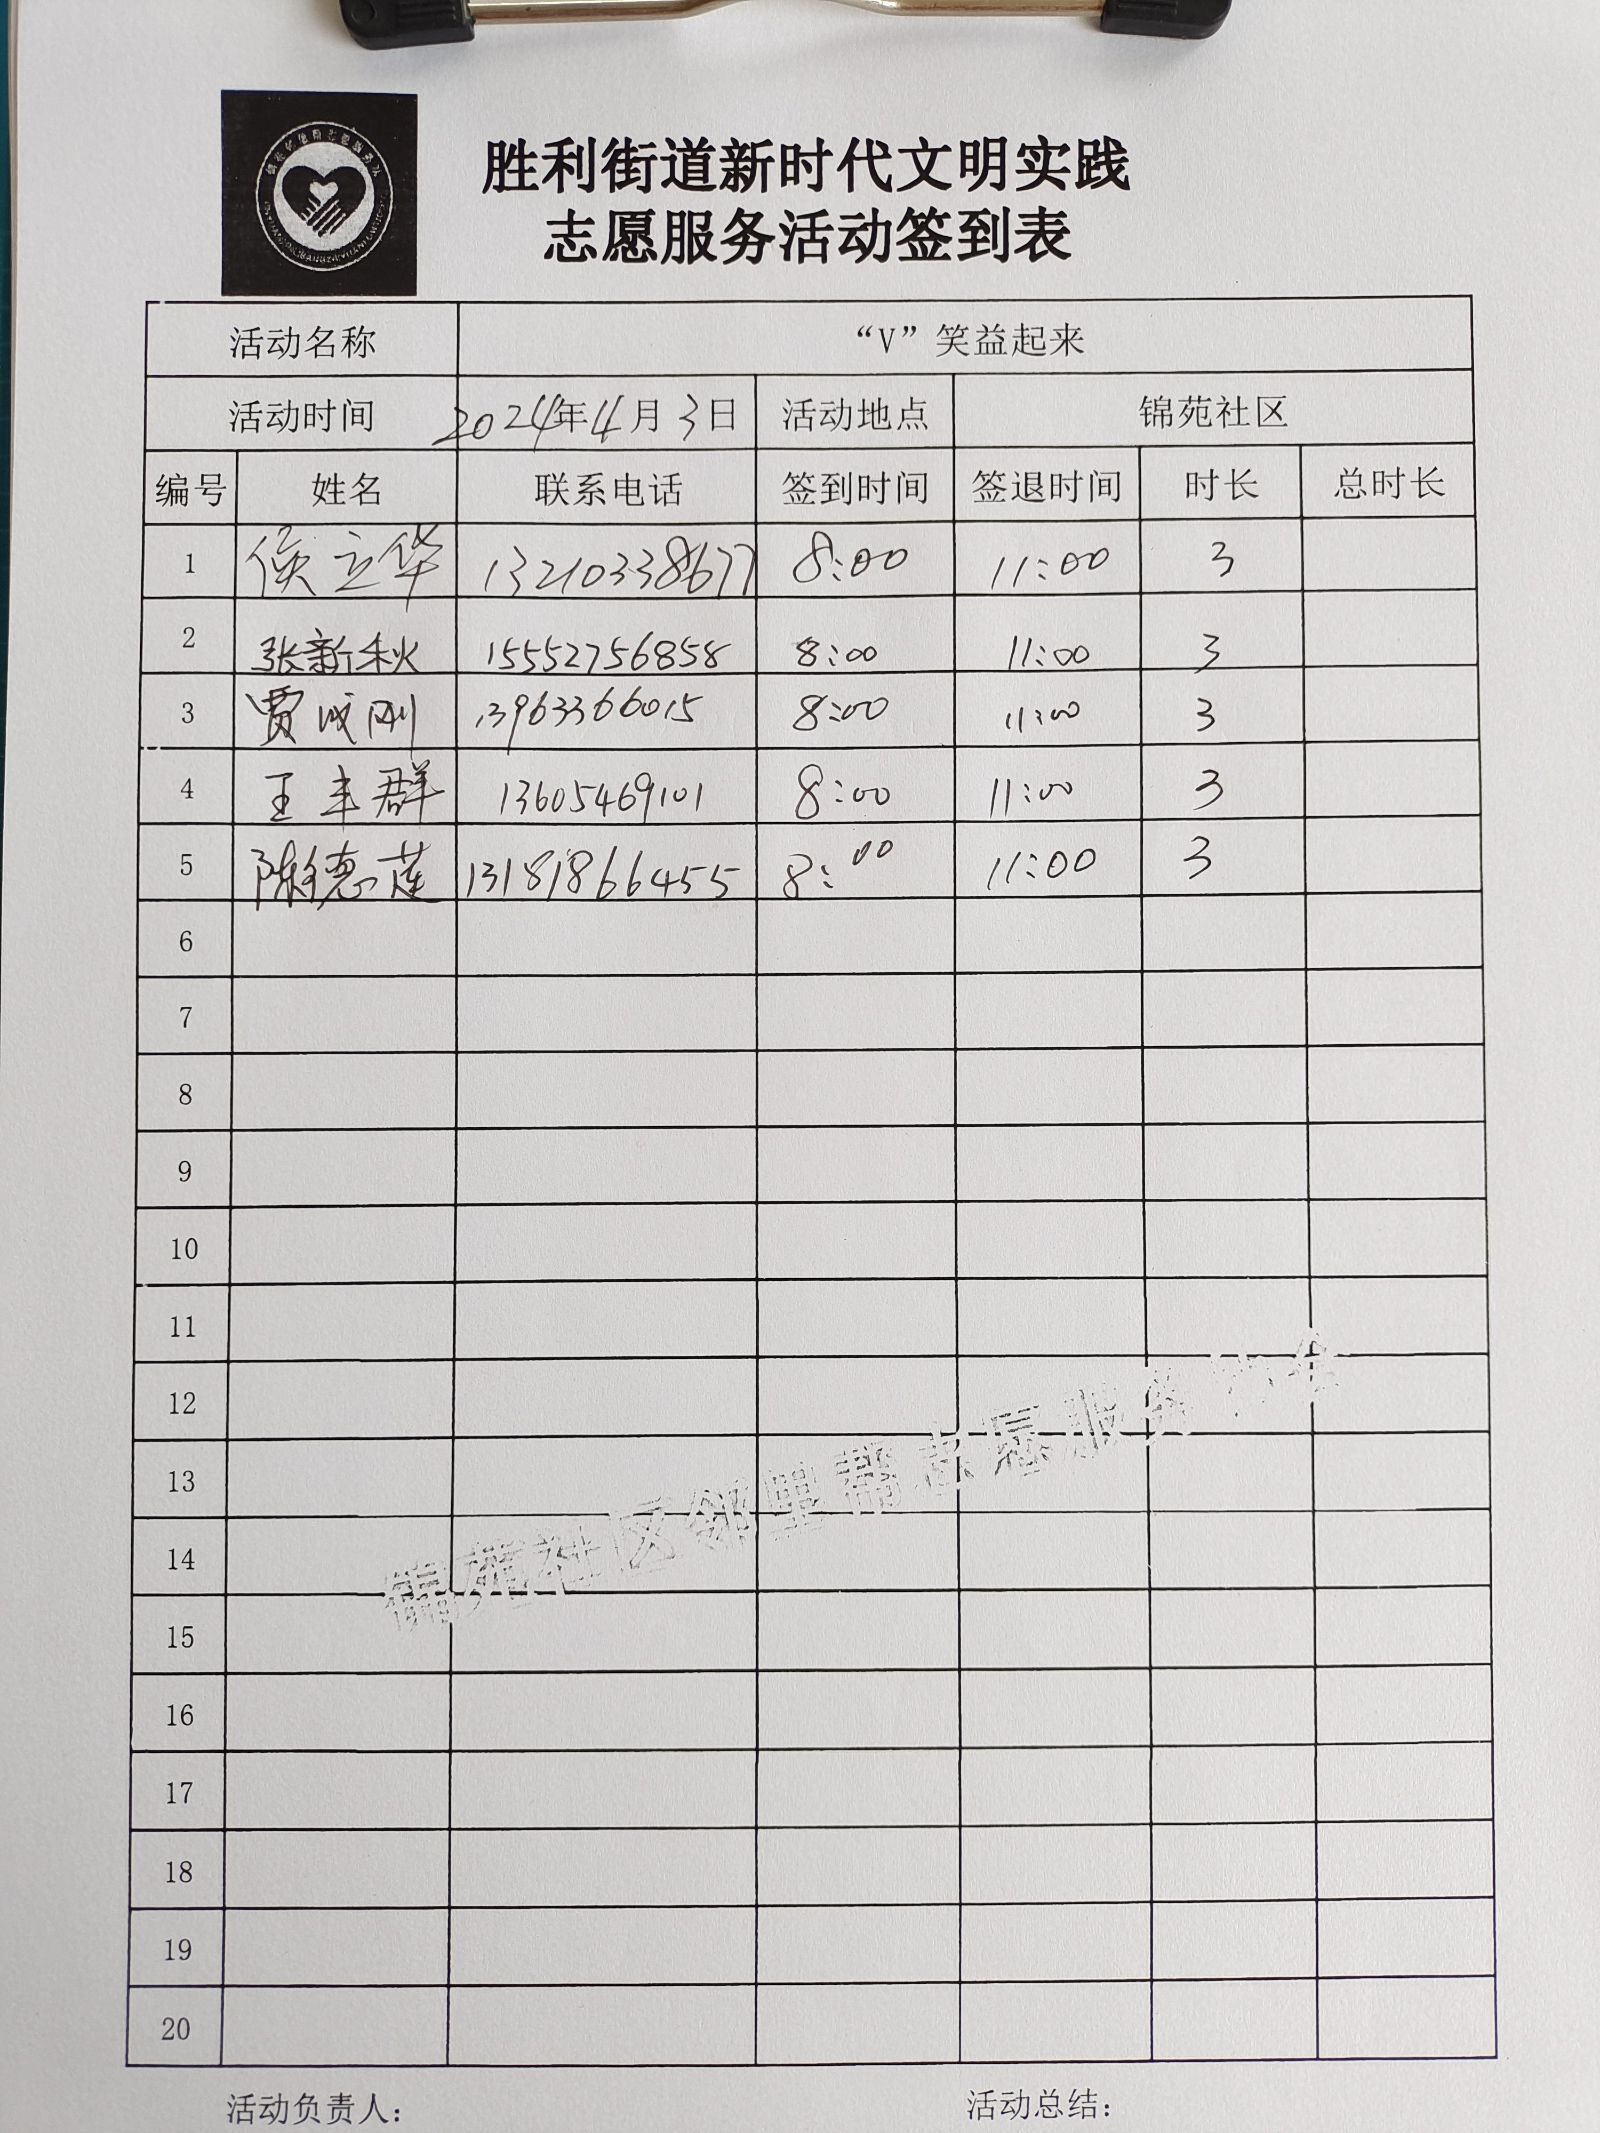 胜利街道新时代文明实践
志愿服务活动签到表
活动名称 “V”笑益起来
活动时间 2024年4月3日 活动地点 锦苑社区
编号 姓名 联系电话 签到时间 签退时间 时长 总时长
1 侯立华 13210338677 8:00 11:00 3
2 张新秋 15552756858 8:00 11:00 3
3 贾成刚 13963366015 8:00 11:00 3
4 王丰群 13605469101 8:00 11:00 3
5 陈德莲 13181866455 8:00 11:00 3
6
7
8
9
10
11
12
13
14
15
16
17
18
19
20
锦苑社区邻里帮志愿服务协会
活动负责人：
活动总结：